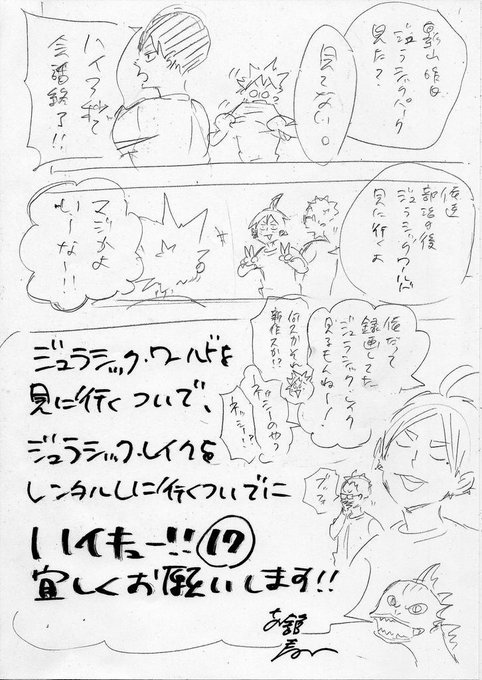 影山昨日
ジュラシックパーク
見た？
見てない。
ハイ
会話終了!!
俺達
部活の後
ジュラシックワールド
見に行くよ
マジかよ
いーなー!!
俺だって
録画してた
ジュラシック・レイク
見るもんねー!
何スかそれ
新作スか!?
ネッシーのやつ
ネッシー!?
ジュラシック・ワールドを
見に行くついで、
ジュラシック・レイクを
レンタルしに行くついでに
ハイキュー!!⑰
宜しくお願いします!!